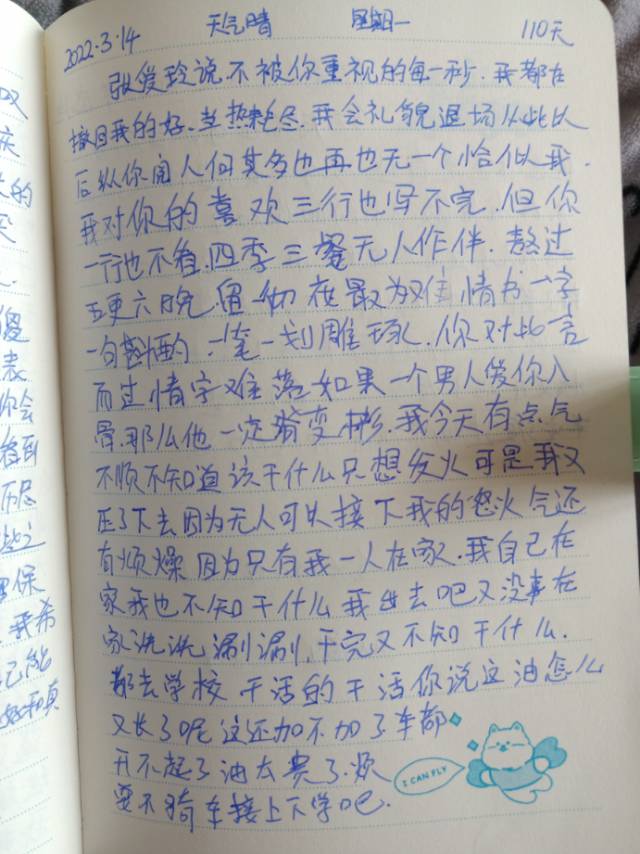 2022.3.14 天气晴 星期一 110天
张爱玲说不被你重视的每一秒.我都在
撤回我的好.当热耗尽.我会礼貌退场从此以
后纵你阅人何其多也再也无一个恰似我.
我对你的喜欢三行也写不完.但你
一行也不看.四季三餐无人作伴.熬过
五更六晚.留一物在最为难情书一字
一句斟酌.一笔一划雕琢.你对此言
而过情字难落如果一个男人爱你入
骨.那么他一定渐变彬.我今天有点气
不顺不知道该干什么只想发火可是我又
压了下去因为无人可以接下我的怒火气还
有烦燥因为只有我一人在家.我自己在
家我也不知干什么我出去吧又没事在
家洗洗涮涮.干完又不知干什么.
都去学校干活的干活你说这油怎么
又长了呢这还加不加了车都
开不起了油太贵了.烦
要不骑车接上下学吧.
I CAN FLY
双
庆
的
天
傻
表
你会
不尽
保
我希
己能